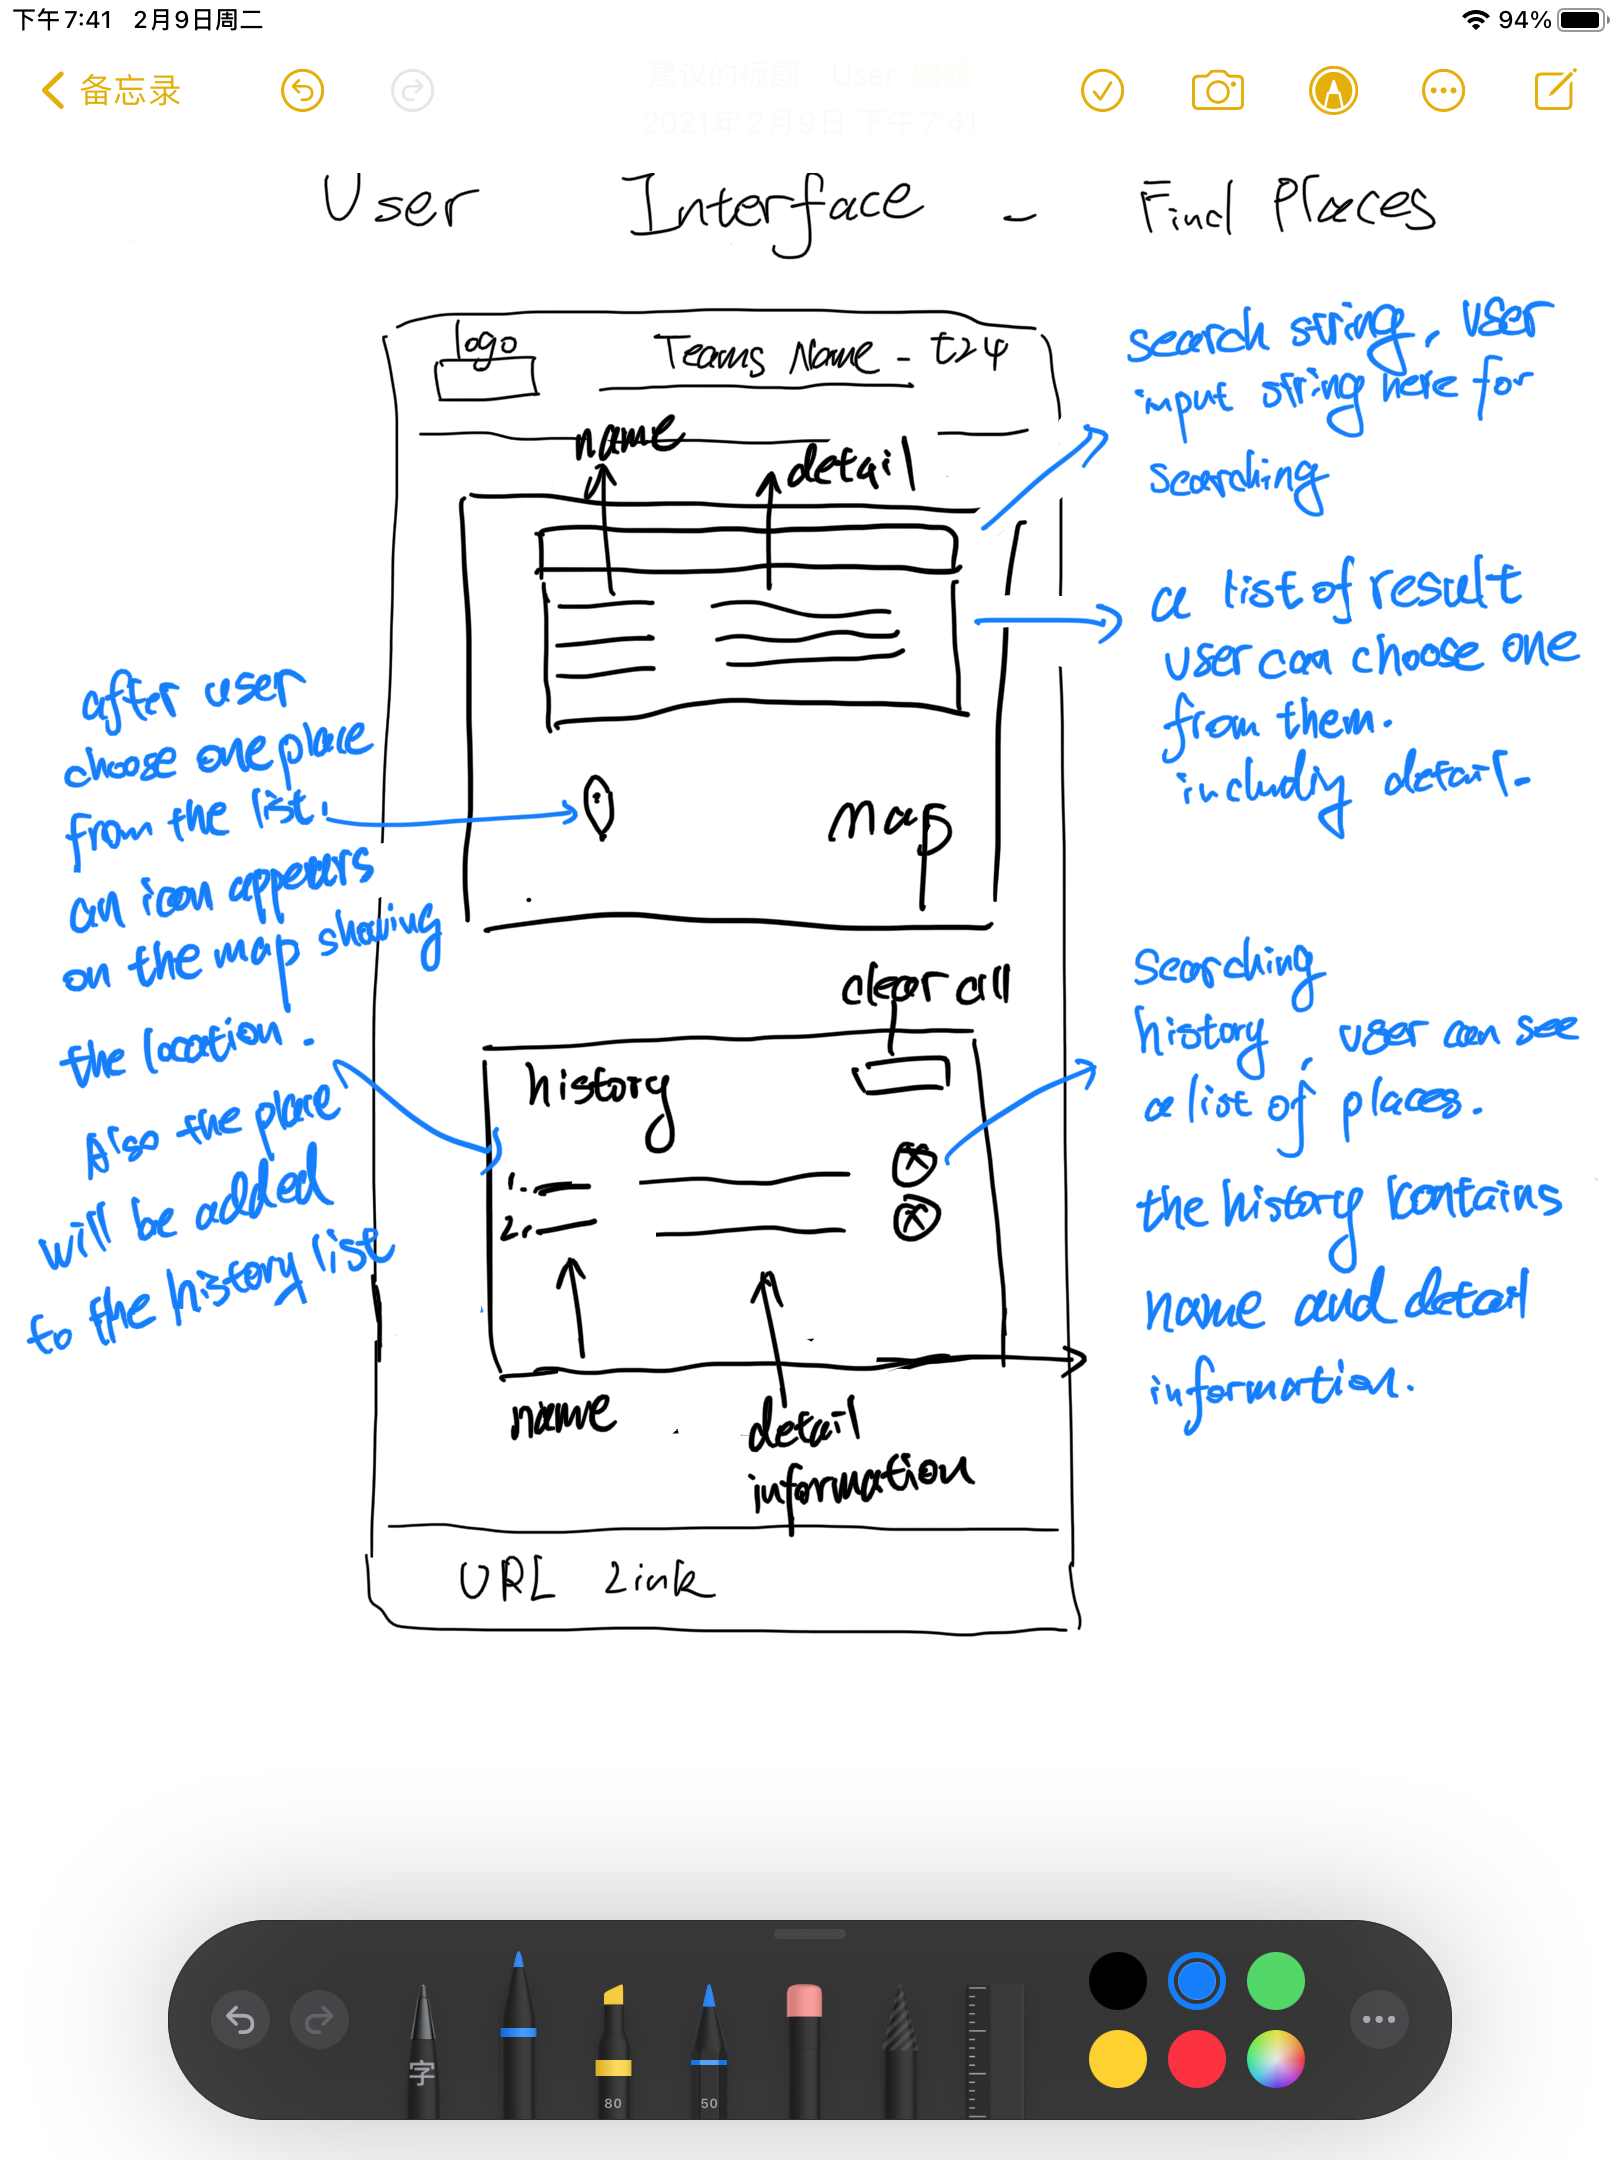 下午7:41 2月9日周二
94%
备忘录
建议的标题：User 编辑
2021年2月9日 下午7:41
User Interface - Find Places
logo
Teams Name - t24
name
detail
search string, user
input string here for
searching
a list of result
user can choose one
from them.
includiy detail.
after user
choose one place
from the list.
an icon appears
on the map showing
the location.
Also the place
will be added
to the history list
map
clear all
history
1.
2.
name
detail
information
searching
history, user can see
a list of places.
the history contains
name and detail
information.
URL Link
字
80
50